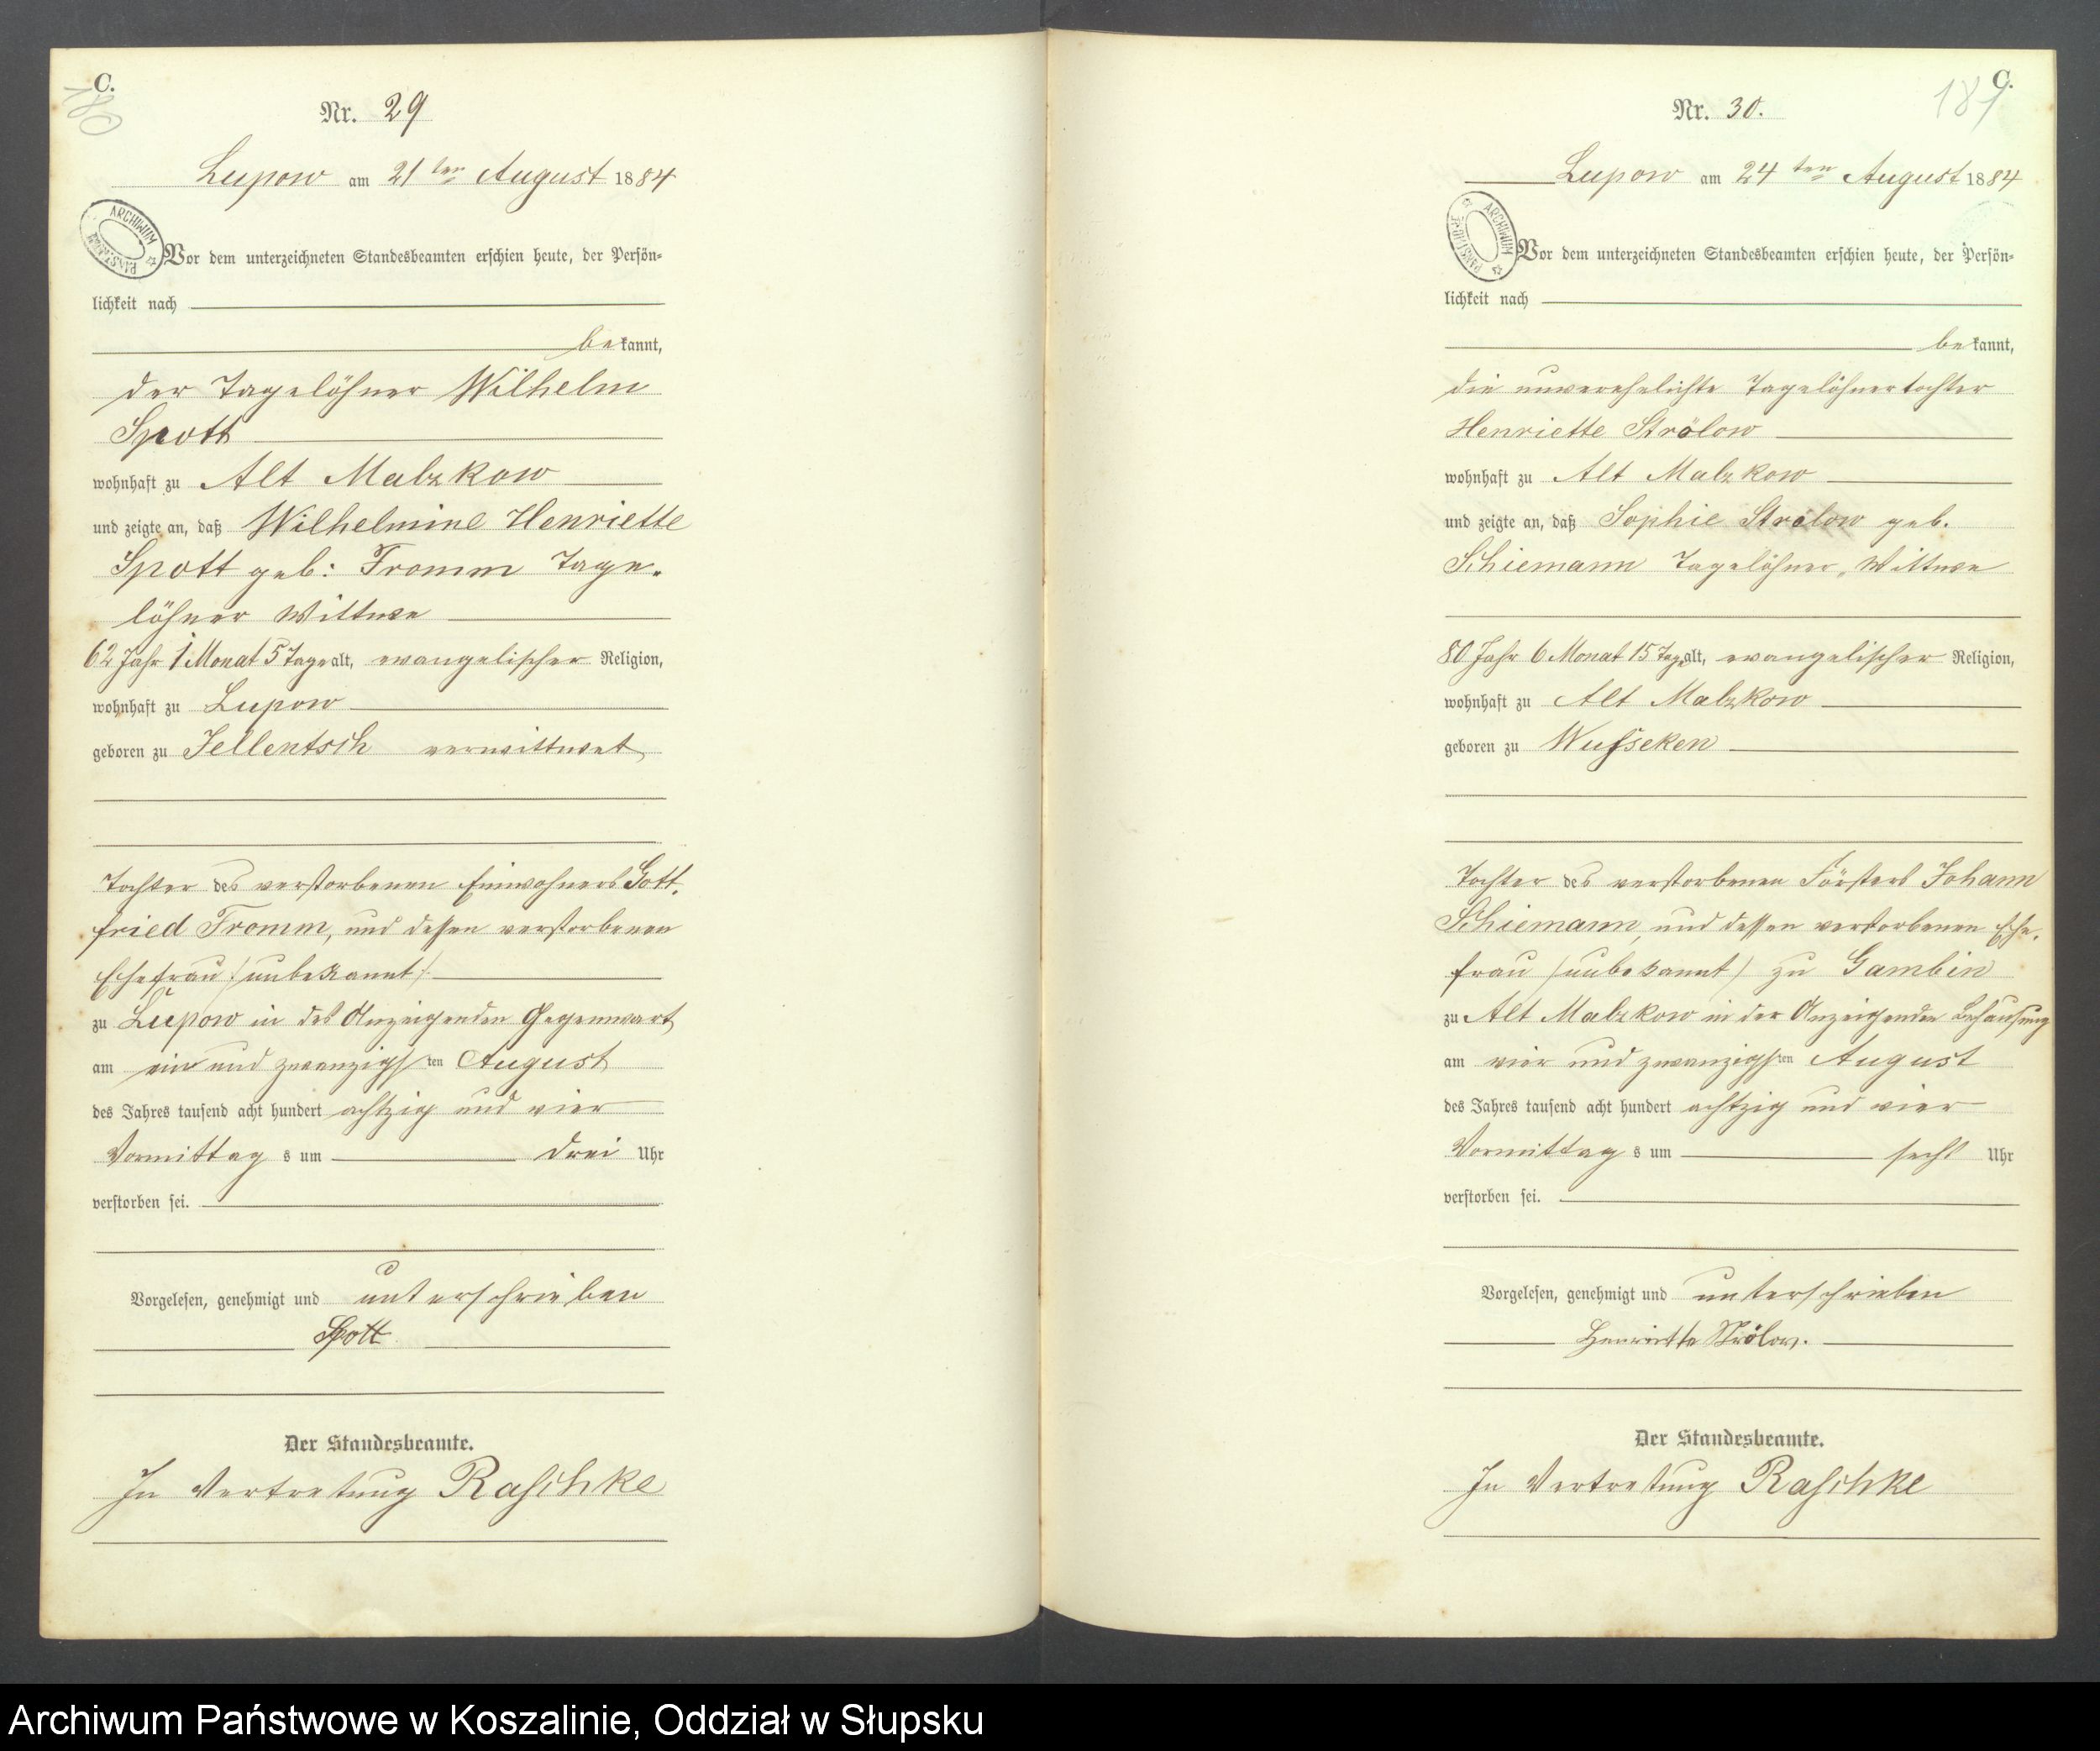 C.
180
Nr. 29
Lupow am 21ten August 1884
ARCHIWUM PAŃSTWOWE
Vor dem unterzeichneten Standesbeamten erschien heute, der Persön-
lichkeit nach
bekannt,
der Tagelöhner Wilhelm
Spott
wohnhaft zu Alt Malzkow
und zeigte an, daß Wilhelmine Henriette
Spott geb: Fromm Tage-
löhner Wittwe
62 Jahr 1 Monat 5 Tage alt, evangelischer Religion,
wohnhaft zu Lupow
geboren zu Jellentsch verwittwet
Tochter des verstorbenen Einwohners Gott-
fried Fromm, und dessen verstorbenen
Ehefrau /:unbekannt/:
zu Lupow in des Anzeigenden Gegenwart
am ein und zwanzigsten August
des Jahres tausend acht hundert achtzig und vier
Vormittags um drei Uhr
verstorben sei.
Vorgelesen, genehmigt und unterschrieben
Spott
Der Standesbeamte.
In Vertretung Raschke
C.
181
Nr. 30.
Lupow am 24ten August 1884
ARCHIWUM PAŃSTWOWE
Vor dem unterzeichneten Standesbeamten erschien heute, der Persön-
lichkeit nach
bekannt,
die unverehelichte Tagelöhnertochter
Henriette Strölow
wohnhaft zu Alt Malzkow
und zeigte an, daß Sophie Strölow geb.
Schiemann Tagelöhner-Wittwe
80 Jahr 6 Monat 15 Tage alt, evangelischer Religion,
wohnhaft zu Alt Malzkow
geboren zu Wusseken
Tochter des verstorbenen Försters Johann
Schiemann, und dessen verstorbenen Ehe-
frau /unbekannt/ zu Gambin
zu Alt Malzkow in der Anzeigenden Behausung
am vier und zwanzigsten August
des Jahres tausend acht hundert achtzig und vier
Vormittags um sechs Uhr
verstorben sei.
Vorgelesen, genehmigt und unterschrieben
Henriette Strölow.
Der Standesbeamte.
In Vertretung Raschke
Archiwum Państwowe w Koszalinie, Oddział w Słupsku